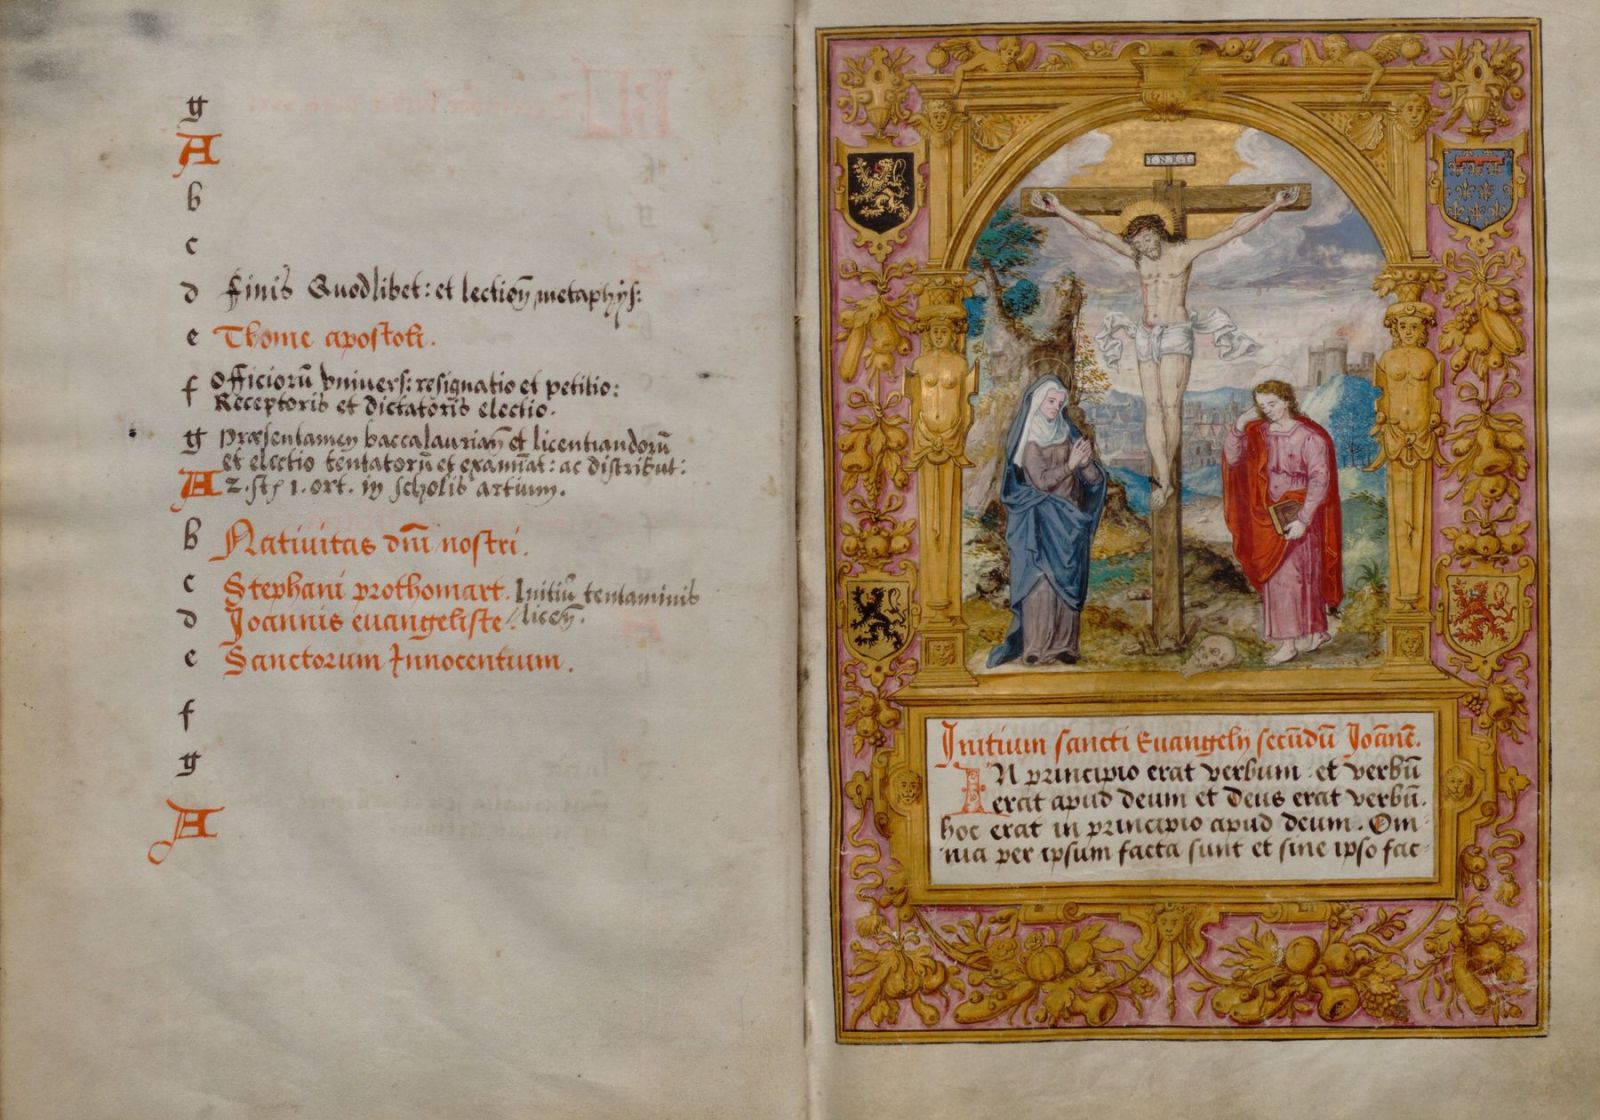 g
A
b
c
d finis Quodlibet: et lectioñ metaphys:
e Thome apostoli.
f Officiorū vnivers: resignatio et petitio:
Receptoris et dictatoris electio.
g Præsentameñ baccalauriañ et licentiandorū
et electio tentatorū et examinat: ac distribut:
A 2. stp 1. ort. in scholis artium.
b Nativitas dñi nostri.
c Stephani prothomart. Initiū tentaminis
d Joannis euangeliste. liceñ.
e Sanctorum Innocentium.
f
g
A
I.N.R.I
Initium sancti Euangelij secūdū Joānē.
IN principio erat verbum et verbū
erat apud deum et deus erat verbū.
hoc erat in principio apud deum. Om-
nia per ipsum facta sunt et sine ipso fac-